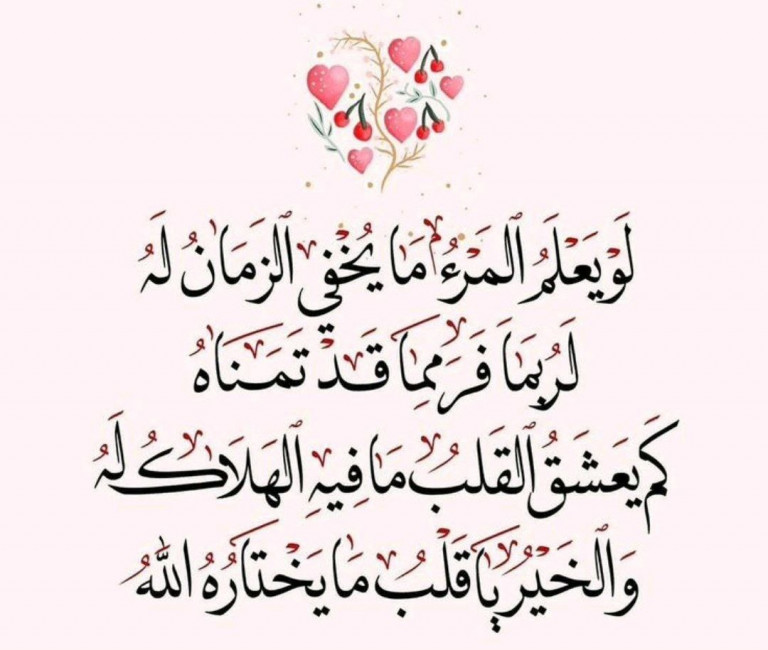 لَوْ يَعْلَمُ الْمَرْءُ مَا يُخْفِي الزَمَانُ لَهُ
لَرُبمَا فَرَ مِمِا قَدْ تَمَنَاهُ
كَم يَعشَقُ القَلبُ مَا فِيهِ الهَلَاكُ لَهُ
وَالخَيْرُ يَا قَلْبُ مَا يَختَارُهُ اللهُ